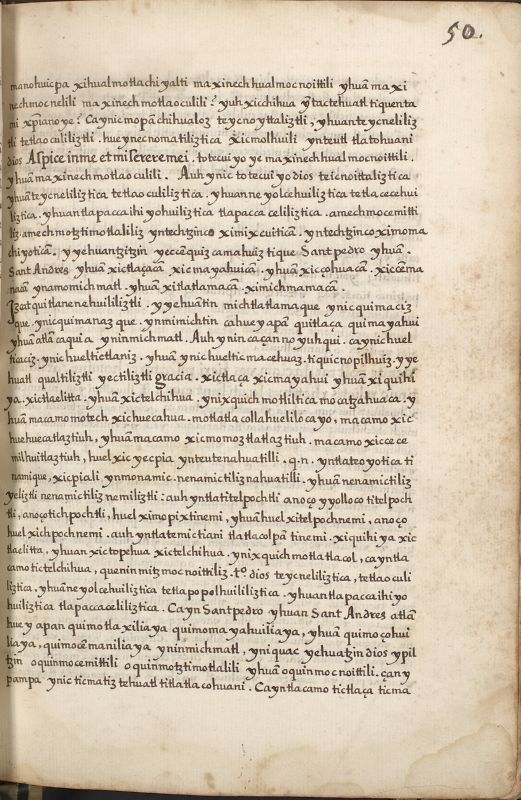 50.
manohuicpa xihualmotlachiyalti maxinechhualmocnoittili yhuā maxi
nechmocnelili maxinechmotlaoculili? yuhxicchihua ȳtactehuatl tiquenta
mi xp̄iano ye? Caynicmopā chihualoz teycnoyttaliztli, yhuanteycneliliz
tli tetlaoculiliztli. hueynecnomatiliztica xicmolhuili ynteutl tlatohuani
dios Aspice in me et miserere mei. totecuiyo ye maxinechhualmocnoittili.
yhuā maxinechmotlaoculili. Auh ynic totecuiyo dios teicnoittalizti ca
yhuā teycneliliztica tetlaoculiliztica. yhuanne yolcehuiliztica tetlacecehui
liztica. yhuan tlapaccaihiyohuiliztica tlapacca celiliztica. amechmocemitti
liz. amechmotztimotlaliliz yntechtzinco ximixcuiticā. yntechtzinco ximoma
chiyoticā. yyehuantzitzin yeccēquizcamahuiztique Sant pedro yhuā.
Sant Andres yhuā xictlaçacā xicmayahuicā. yhuā xicçohuacā. xiccēma
nacā ynamomichmatl. yhuā xitlatlamacā. ximichmamacā.
Izcatqui tlanenehuililiztli. yyehuātin michtlatlamaque ynicquimaciz
que. ynicquimanazque. ynmimichtin cahueyapā quitlaça quimayahui
yhuā atlā caquia yninmichmatl. Auh ynin caçannoyuhqui. caynichuel
ticaciz. ynichueltictlaniz. yhuā ynichueltic macehuaz. tiquicnopilhuiz. yye
huatl qualtiliztli yectiliztli gracia. xictlaça xicmayahui yhuā xiquihi
ya. xictlaelitta. yhuā xictelchihua. ynixquich motliltica mocatzahuaca. y
huā macamo motech xichuecahua. motlatlacollahuelilocayo, macamo xic
huehuecatlaztiuh, yhuā macamo xicmomoztlatlaztiuh. macamo xiccece
milhuitlaztiuh, huel xicyecpia ynteutenahuatilli. q.n. yntlateoyotica ti
namique, xicpiali ynmonamic. nenamictiliznahuatilli. yhuā nenamictiliz
yeliztli nenamictiliznemiliztli: auh yntlatitelpochtli anoço yyolloco titelpoch
tli, anoço tichpochtli, huel ximopixtinemi, yhuā huel xitelpochnemi, anoço
huel xichpochnemi. auh yntlatemictiani tlatlacolpā tinemi. xiquihiya xic
tlaelitta, yhuan xictopehua xictelchihua. ynixquich motlatlacol, cayntla
camo tictelchihua, quenin mitzmocnoittiliz. tº. dios teycneliliztica, tetlaoculi
liztica, yhuāneyolcehuiliztica tetlapopolhuililiztica. yhuantlapaccaihiyo
huiliztica tlapaccaceliliztica. Cayn Santpedro yhuan Sant Andres atlā
hueyapan quimotlaxiliaya quimomayahuiliaya, yhuā quimoçohui
liaya, quimocēmaniliaya yninmichmatl, yniquac yehuatzin dios ypil
tzin oquinmocemittili oquinmotztimotlalili yhuā oquinmocnoittili. çan y
pampa ynic ticmatiz tehuatl titlatlacohuani. Cayntlacamo tictlaça ticma